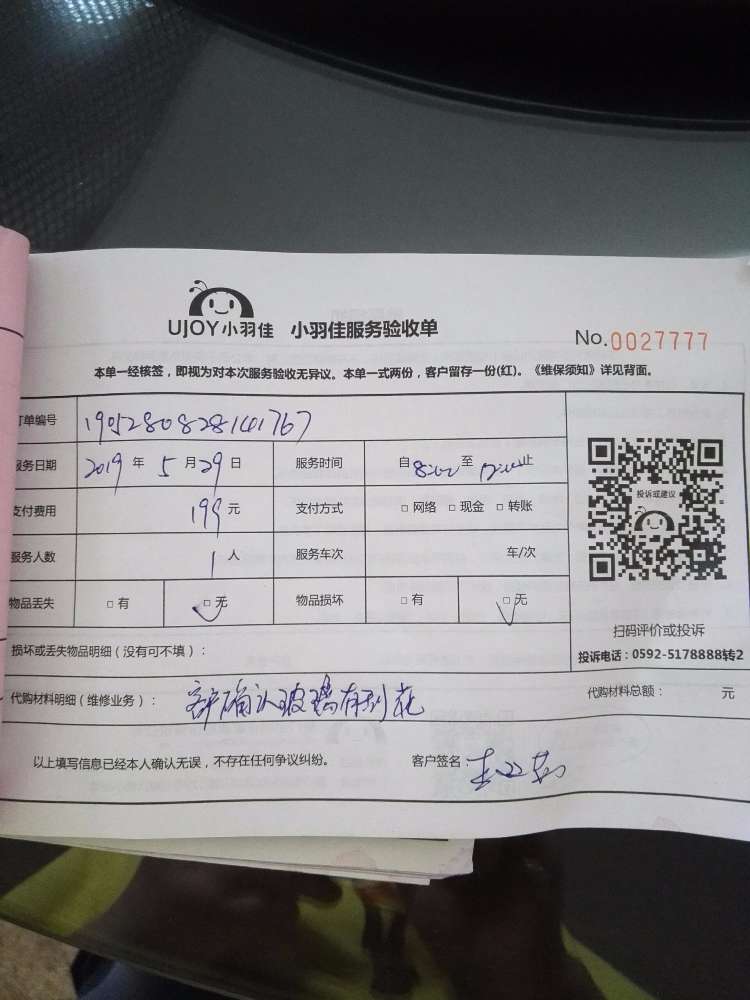 UJOY小羽佳 小羽佳服务验收单
No.0027777
本单一经核签，即视为对本次服务验收无异议。本单一式两份，客户留存一份(红)。《维保须知》详见背面。
订单编号 1905280828141767
服务日期 2019 年 5 月 29 日 服务时间 自 8:00 至 12:00 止
支付费用 199 元 支付方式 □ 网络 □ 现金 □ 转账
服务人数 1 人 服务车次 车/次
物品丢失 □ 有 □ 无 物品损坏 □ 有 □ 无
投诉或建议
扫码评价或投诉
投诉电话：0592-5178888转2
损坏或丢失物品明细（没有可不填）：
代购材料明细（维修业务）： 客户确认玻璃有刮花 代购材料总额： 元
以上填写信息已经本人确认无误，不存在任何争议纠纷。 客户签名